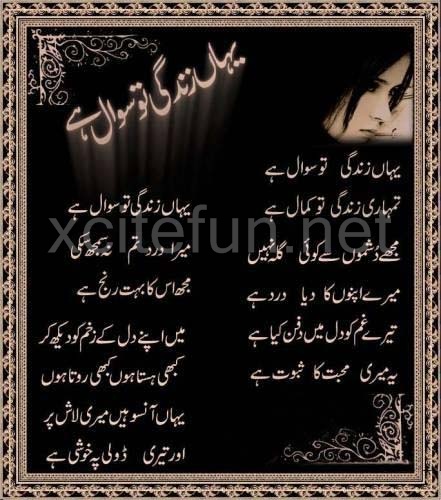 یہاں زندگی تو سوال ہے
یہاں زندگی تو سوال ہے
تمہاری زندگی تو کمال ہے
مجھے دشموں سے کوئی گلہ نہیں
میرے اپنوں کا دیا درد ہے
تیرے غم کو دل میں دفن کیا ہے
یہ میری محبت کا ثبوت ہے
یہاں زندگی تو سوال ہے
میرا درد غم نہ سمجھ سکی
مجھ اس کا بہت رنج ہے
میں اپنے دل کے زخم کو دیکھ کر
کبھی ہستا ہوں کبھی روتا ہوں
یہاں آنسو ہیں میری لاش پر
اور تیری ڈولی پہ خوشی ہے
xcitefun.net